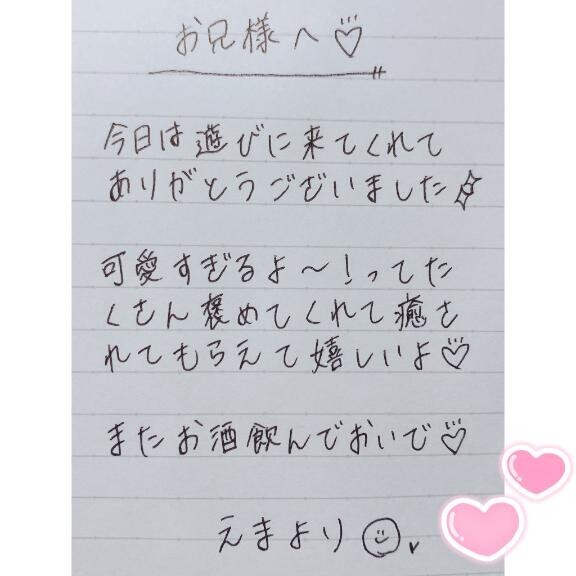 お兄様へ♡
今日は遊びに来てくれて
ありがとうございました☆
可愛すぎるよ〜!ってた
くさん褒めてくれて癒さ
れてもらえて嬉しいよ♡
またお酒飲んでおいで♡
えまより